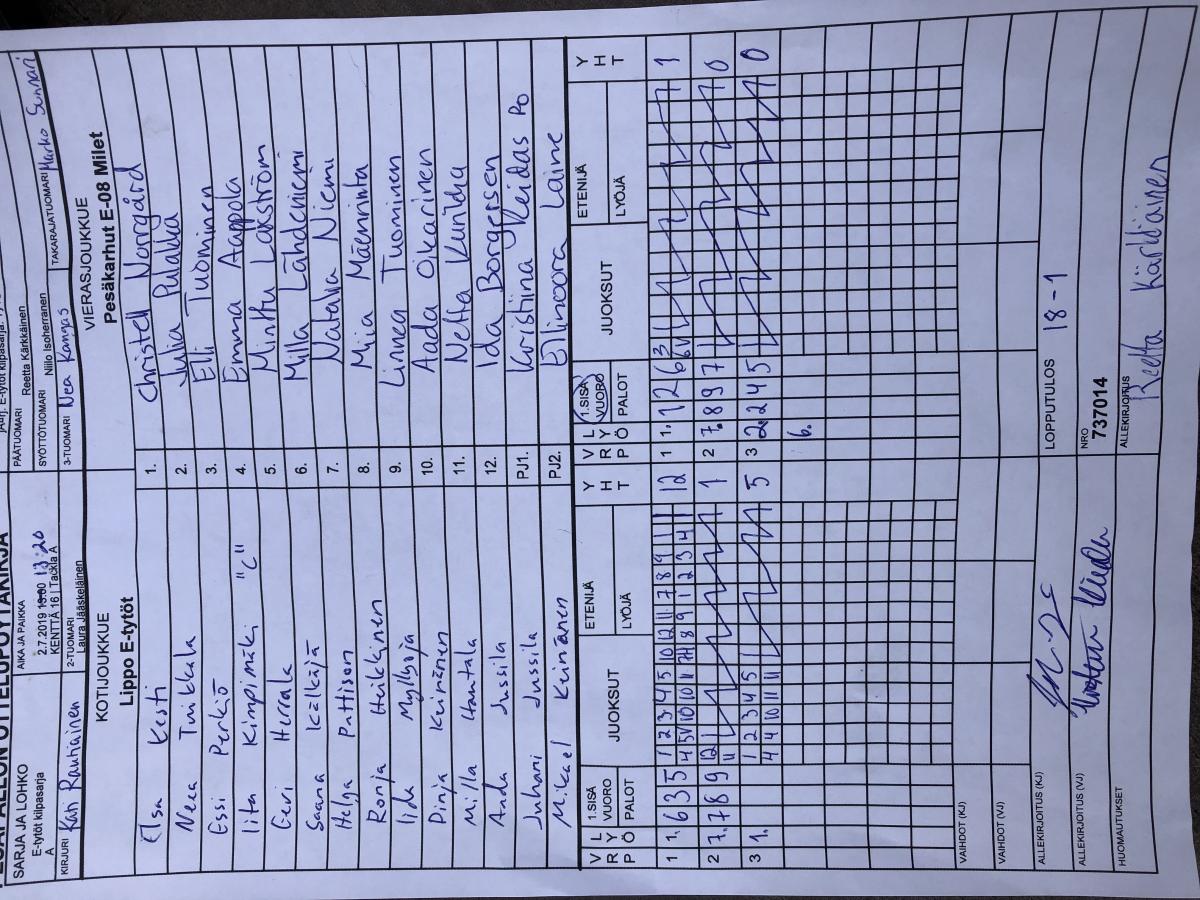 PESÄPALLON OTTELUPÖYTÄKIRJA
SARJA JA LOHKO
E-tytöt kilpasarja
A
AIKA JA PAIKKA
2.7.2019 13:20
KENTTÄ 16 | Tackla A
PÄÄTUOMARI Reetta Kärkkäinen
SYÖTTÖTUOMARI Niilo Isoherranen
KIRJURI Kari Rautiainen
2-TUOMARI
Laura Jääskeläinen
3-TUOMARI Nea Kangas
TAKARAJATUOMARI Marko Sunnari
KOTIJOUKKUE
Lippo E-tytöt
VIERASJOUKKUE
Pesäkarhut E-08 Milet
Elsa Kesti 1. Christell Norrgård
Neea Tuikkala 2. Julia Pulakka
Essi Perkiö 3. Elli Tuominen
Iita Kimpimäki "C" 4. Emma Aappola
Eevi Herrala 5. Minttu Laxström
Saana Kälkäjä 6. Milla Lähdeniemi
Helga Pattison 7. Natalia Niemi
Ronja Heikkinen 8. Mia Mäenrinta
Iida Myllyoja 9. Linnea Tuominen
Pinja Keinänen 10. Aada Oikarinen
Milla Hautala 11. Netta Kurikka
Anda Jussila 12. Ida Borgersen
Juhani Jussila PJ1. Kristiina Keidas Po
Mikael Keinänen PJ2. Elinoora Laine
VRPÖ 1.SISÄVUORO PALOT JUOKSUT ETENIJÄ LYÖJÄ YHT
LYPÖ 1.SISÄVUORO PALOT JUOKSUT ETENIJÄ LYÖJÄ YHT
1 1. 6 3 5 1 2 3 4 5 10 12 11 7 8 9 1 12
1 1. 1 2 6 3 1
2 7. 7 8 9 12 1
11
2 7. 8 9 7 0
3 1. 1 2 3 4 5 5
4 4 10 11 11
3 2. 2 4 5 0
6.
VAIHDOT (KJ)
VAIHDOT (VJ)
ALLEKIRJOITUS (KJ)
LOPPUTULOS 18-1
ALLEKIRJOITUS (VJ)
NRO
737014
HUOMAUTUKSET
ALLEKIRJOITUS
Reetta Kärkkäinen